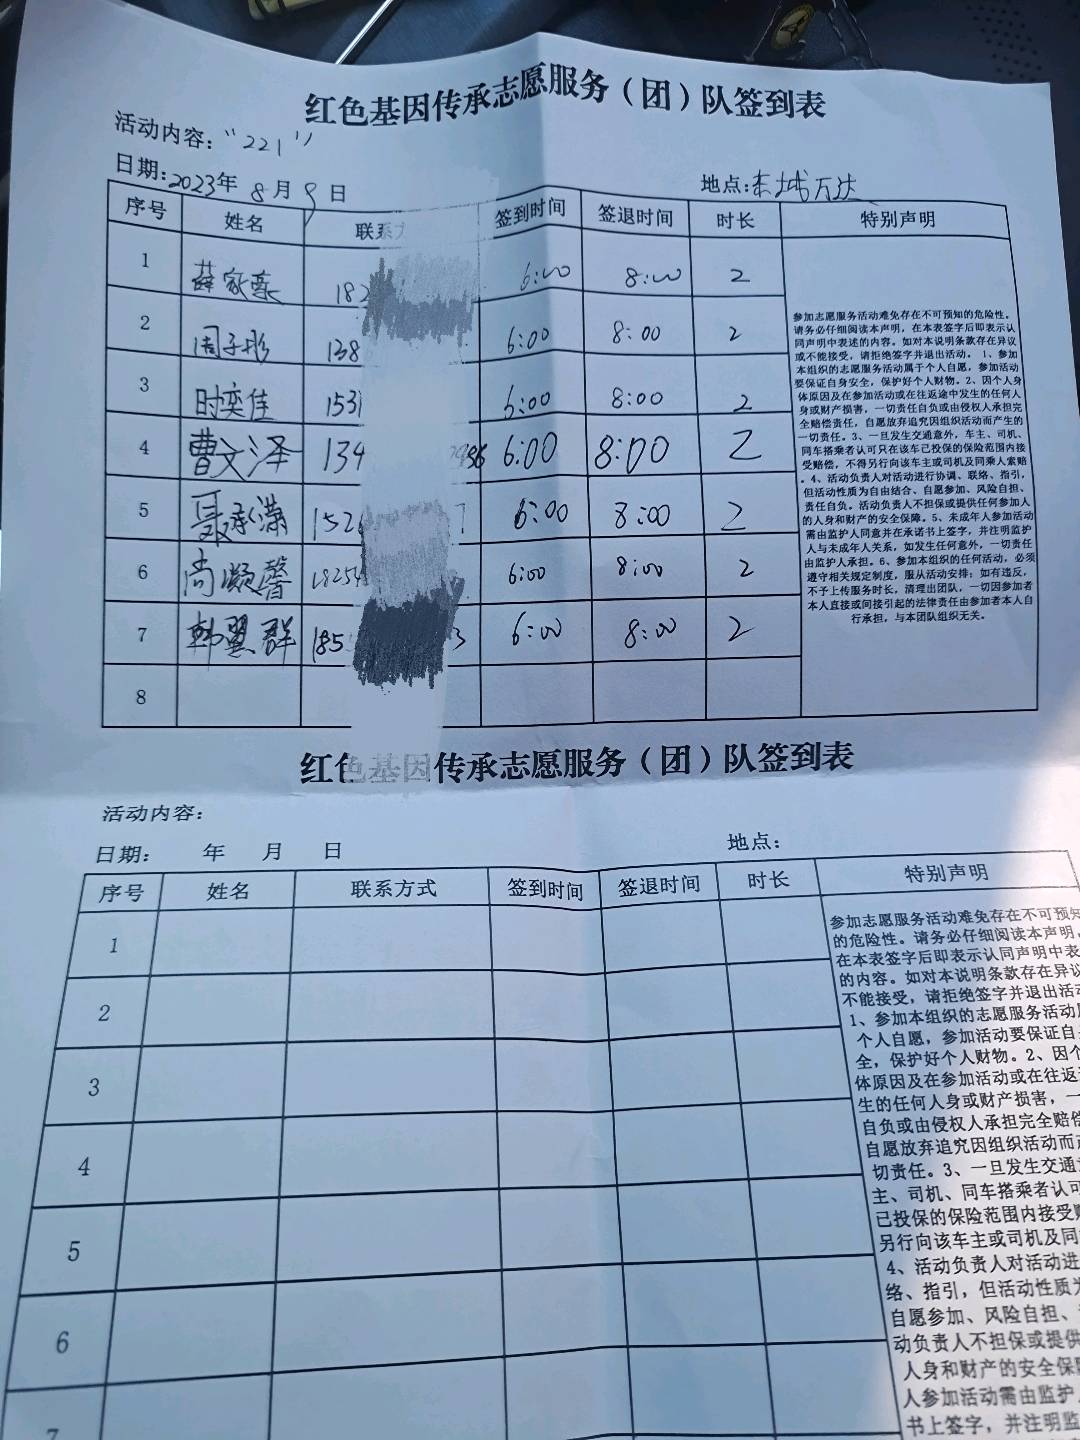 红色基因传承志愿服务（团）队签到表
活动内容：“221”
日期：2023年 8月 9日 地点：东城万达
序号 姓名 联系方 签到时间 签退时间 时长 特别声明
1 薛家豪 182 6:00 8:00 2
2 周子彤 138 6:00 8:00 2
3 时奕佳 1531 6:00 8:00 2
4 曹文泽 134 986 6:00 8:00 2
5 聂承潇 1526 7 6:00 8:00 2
6 尚凝馨 18254 6:00 8:00 2
7 韩翼群 185 3 6:00 8:00 2
8
参加志愿服务活动难免存在不可预知的危险性。
请务必仔细阅读本声明，在本表签字后即表示认
同声明中表述的内容。如对本说明条款存在异议
或不能接受，请拒绝签字并退出活动。 1、参加
本组织的志愿服务活动属于个人自愿，参加活动
要保证自身安全，保护好个人财物。2、因个人身
体原因及在参加活动或在往返途中发生的任何人
身或财产损害，一切责任自负或由侵权人承担完
全赔偿责任，自愿放弃追究因组织活动而产生的
一切责任。3、一旦发生交通意外，车主、司机、
同车搭乘者认可只在该车已投保的保险范围内接
受赔偿，不得另行向该车主或司机及同乘人索赔
。4、活动负责人对活动进行协调、联络、指引，
但活动性质为自由结合、自愿参加、风险自担、
责任自负。活动负责人不担保或提供任何参加人
的人身和财产的安全保障。5、未成年人参加活动
需由监护人同意并在承诺书上签字，并注明监护
人与未成年人关系，如发生任何意外，一切责任
由监护人承担。6、参加本组织的任何活动，必须
遵守相关规定制度，服从活动安排；如有违反，
不予上传服务时长，清理出团队，一切因参加者
本人直接或间接引起的法律责任由参加者本人自
行承担，与本团队组织无关。
红色基因传承志愿服务（团）队签到表
活动内容：
日期： 年 月 日 地点：
序号 姓名 联系方式 签到时间 签退时间 时长 特别声明
1
2
3
4
5
6
7
参加志愿服务活动难免存在不可预知
的危险性。请务必仔细阅读本声明，
在本表签字后即表示认同声明中表
的内容。如对本说明条款存在异议
不能接受，请拒绝签字并退出活动
1、参加本组织的志愿服务活动属
个人自愿，参加活动要保证自
全，保护好个人财物。2、因个
体原因及在参加活动或在往返途
生的任何人身或财产损害，一
自负或由侵权人承担完全赔偿
自愿放弃追究因组织活动而产
切责任。3、一旦发生交通意
主、司机、同车搭乘者认可
已投保的保险范围内接受赔
另行向该车主或司机及同
4、活动负责人对活动进
络、指引，但活动性质为
自愿参加、风险自担、
动负责人不担保或提供
人身和财产的安全保障
人参加活动需由监护
书上签字，并注明监